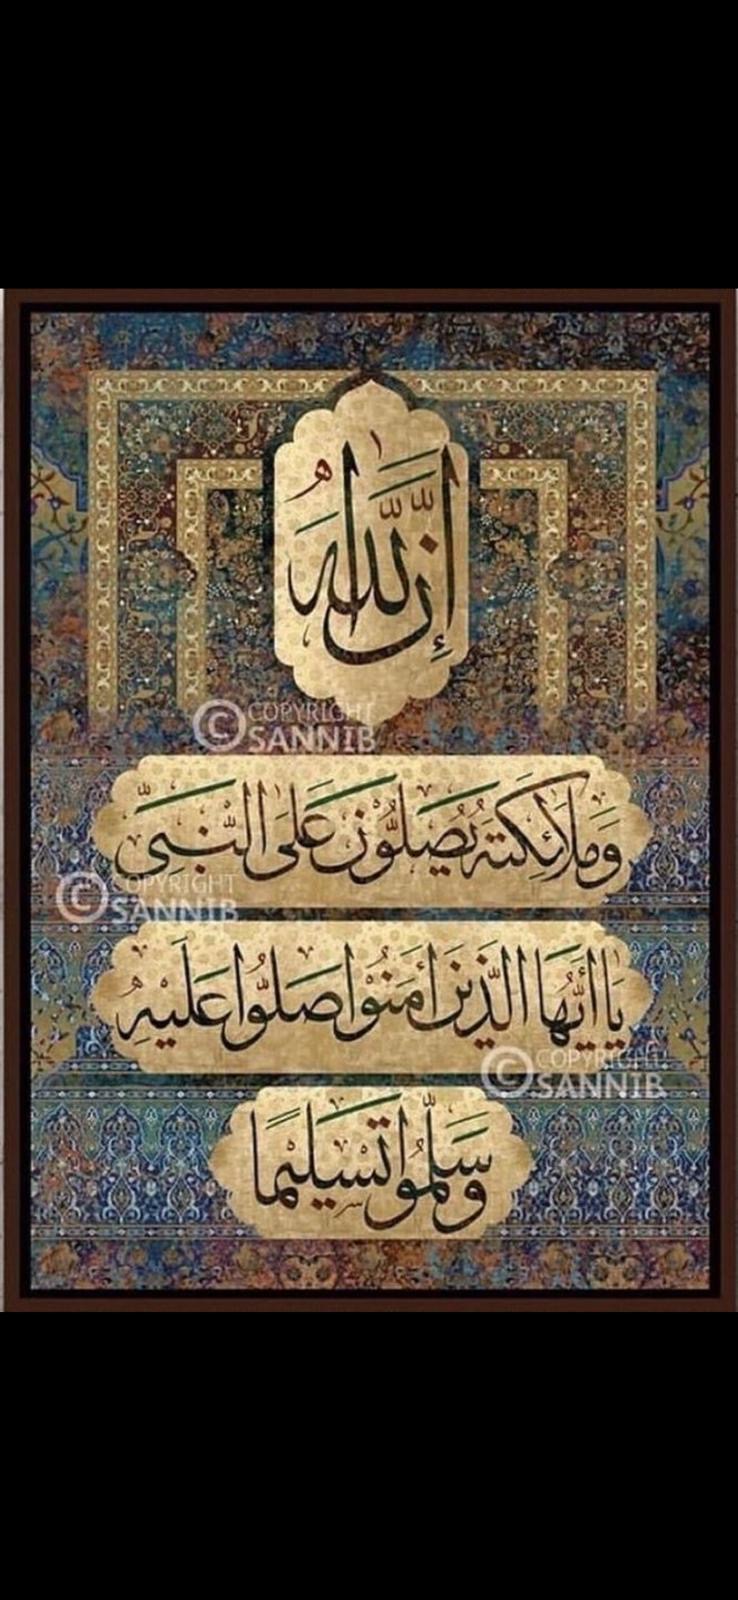 إِنَّ اللَّهَ
COPYRIGHT
© SANNIB
وَمَلَائِكَتَهُ يُصَلُّونَ عَلَى النَّبِيِّ
COPYRIGHT
© SANNIB
يَا أَيُّهَا الَّذِينَ آمَنُوا صَلُّوا عَلَيْهِ
COPYRIGHT
© SANNIB
وَسَلِّمُوا تَسْلِيمًا